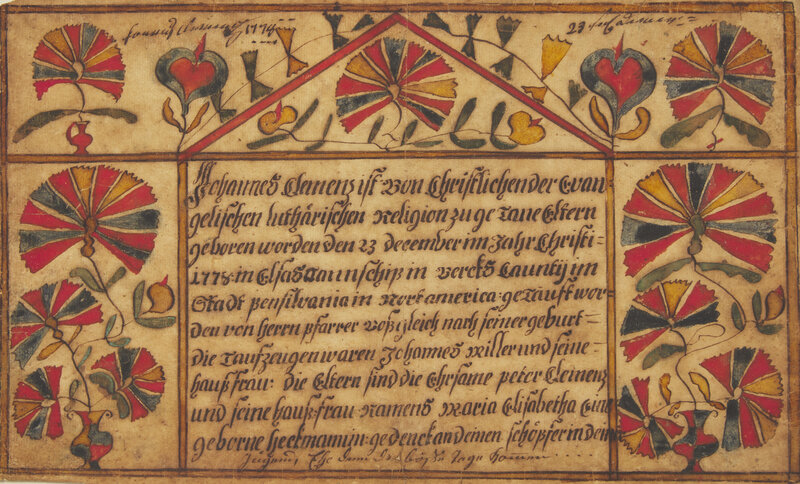 1778
23
Johannes Clemenz ist von Christlichen der Evan-
gelischen luthärischen Religion zu ge Tane Eltern
geboren worden den 23 december im Jahr Christi-
1778 in Elsas Taunschip in Bercks Caunty im
Stadt pensilvania in Nort america: geTauft wor-
den von herrn pfarrer Voß: gleich nach seiner geburt-
die Taufzeugen waren Johannes Miller und seine-
hauß frau: die Eltern sind die Ehrsame peter Clemenz
und seine hauß-frau Namens Maria Elisabetha Eine
geborne Heckmannin: gedenck an deinen schöpfer in dein
Jugend, Ehe dann die böse Tage kommen